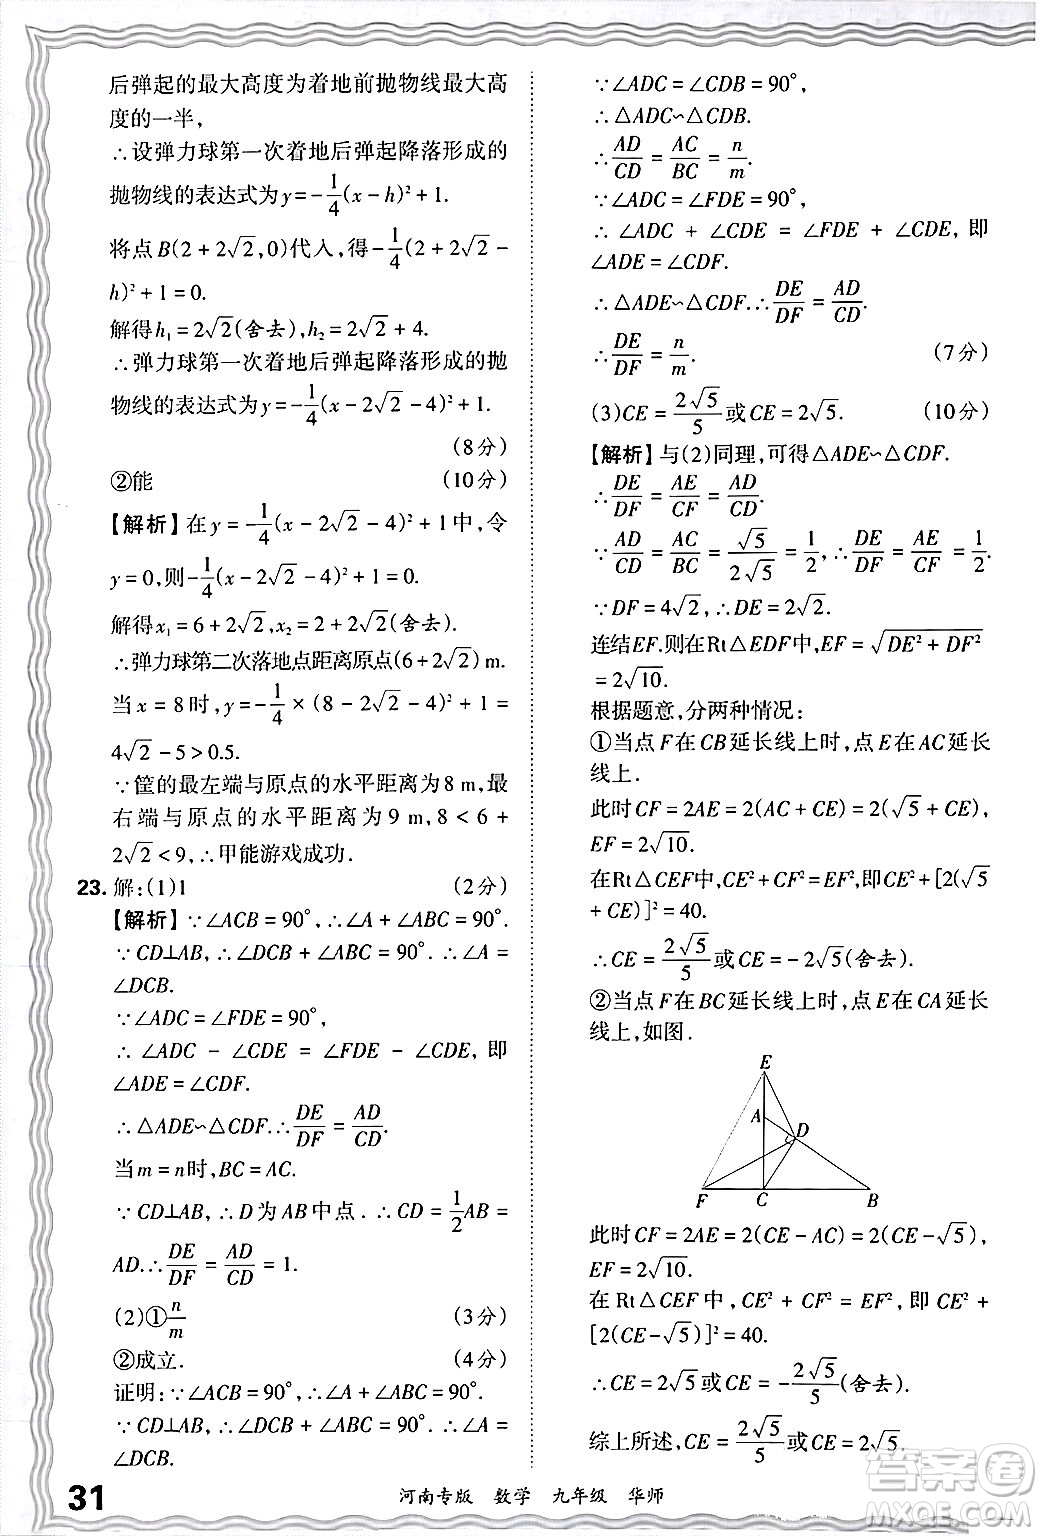 后弹起的最大高度为着地前抛物线最大高
度的一半,
∴设弹力球第一次着地后弹起降落形成的
抛物线的表达式为y=-1/4(x-h)²+1.
将点B(2+2√2,0)代入,得-1/4(2+2√2-
h)²+1=0.
解得h₁=2√2(舍去),h₂=2√2+4.
∴弹力球第一次着地后弹起降落形成的抛
物线的表达式为y=-1/4(x-2√2-4)²+1.
(8分)
②能 (10分)
【解析】在y=-1/4(x-2√2-4)²+1中,令
y=0,则-1/4(x-2√2-4)²+1=0.
解得x₁=6+2√2,x₂=2+2√2(舍去).
∴弹力球第二次落地点距离原点(6+2√2)m.
当x=8时,y=-1/4×(8-2√2-4)²+1=
4√2-5>0.5.
∵筐的最左端与原点的水平距离为8 m,最
右端与原点的水平距离为9 m,8<6+
2√2<9,∴甲能游戏成功.
23.解:(1)1 (2分)
【解析】∵∠ACB=90°,∴∠A+∠ABC=90°.
∵CD⊥AB,∴∠DCB+∠ABC=90°.∴∠A=
∠DCB.
∵∠ADC=∠FDE=90°,
∴∠ADC-∠CDE=∠FDE-∠CDE,即
∠ADE=∠CDF.
∴△ADE∽△CDF.∴DE/DF=AD/CD.
当m=n时,BC=AC.
∵CD⊥AB,∴D为AB中点.∴CD=1/2AB=
AD.∴DE/DF=AD/CD=1.
(2)①n/m (3分)
②成立. (4分)
证明:∵∠ACB=90°,∴∠A+∠ABC=90°.
∵CD⊥AB,∴∠DCB+∠ABC=90°.∴∠A=
∠DCB.
∵∠ADC=∠CDB=90°,
∴△ADC∽△CDB.
∴AD/CD=AC/BC=n/m.
∵∠ADC=∠FDE=90°,
∴∠ADC+∠CDE=∠FDE+∠CDE,即
∠ADE=∠CDF.
∴△ADE∽△CDF.∴DE/DF=AD/CD.
∴DE/DF=n/m. (7分)
(3)CE=2√5/5或CE=2√5. (10分)
【解析】与(2)同理,可得△ADE∽△CDF.
∴DE/DF=AE/CF=AD/CD.
∵AD/CD=AC/BC=√5/2√5=1/2,∴DE/DF=AE/CF=1/2.
∵DF=4√2,∴DE=2√2.
连结EF.则在Rt△EDF中,EF=√(DE²+DF²)
=2√10.
根据题意,分两种情况:
①当点F在CB延长线上时,点E在AC延长
线上.
此时CF=2AE=2(AC+CE)=2(√5+CE),
EF=2√10.
在Rt△CEF中,CE²+CF²=EF²,即CE²+[2(√5
+CE)]²=40.
∴CE=2√5/5或CE=-2√5(舍去).
②当点F在BC延长线上时,点E在CA延长
线上,如图.
E
A
D
F C B
此时CF=2AE=2(CE-AC)=2(CE-√5),
EF=2√10.
在Rt△CEF中,CE²+CF²=EF²,即CE²+
[2(CE-√5)]²=40.
∴CE=2√5或CE=-2√5/5(舍去).
综上所述,CE=2√5/5或CE=2√5.
31
河南专版 数学 九年级 华师
答案圈